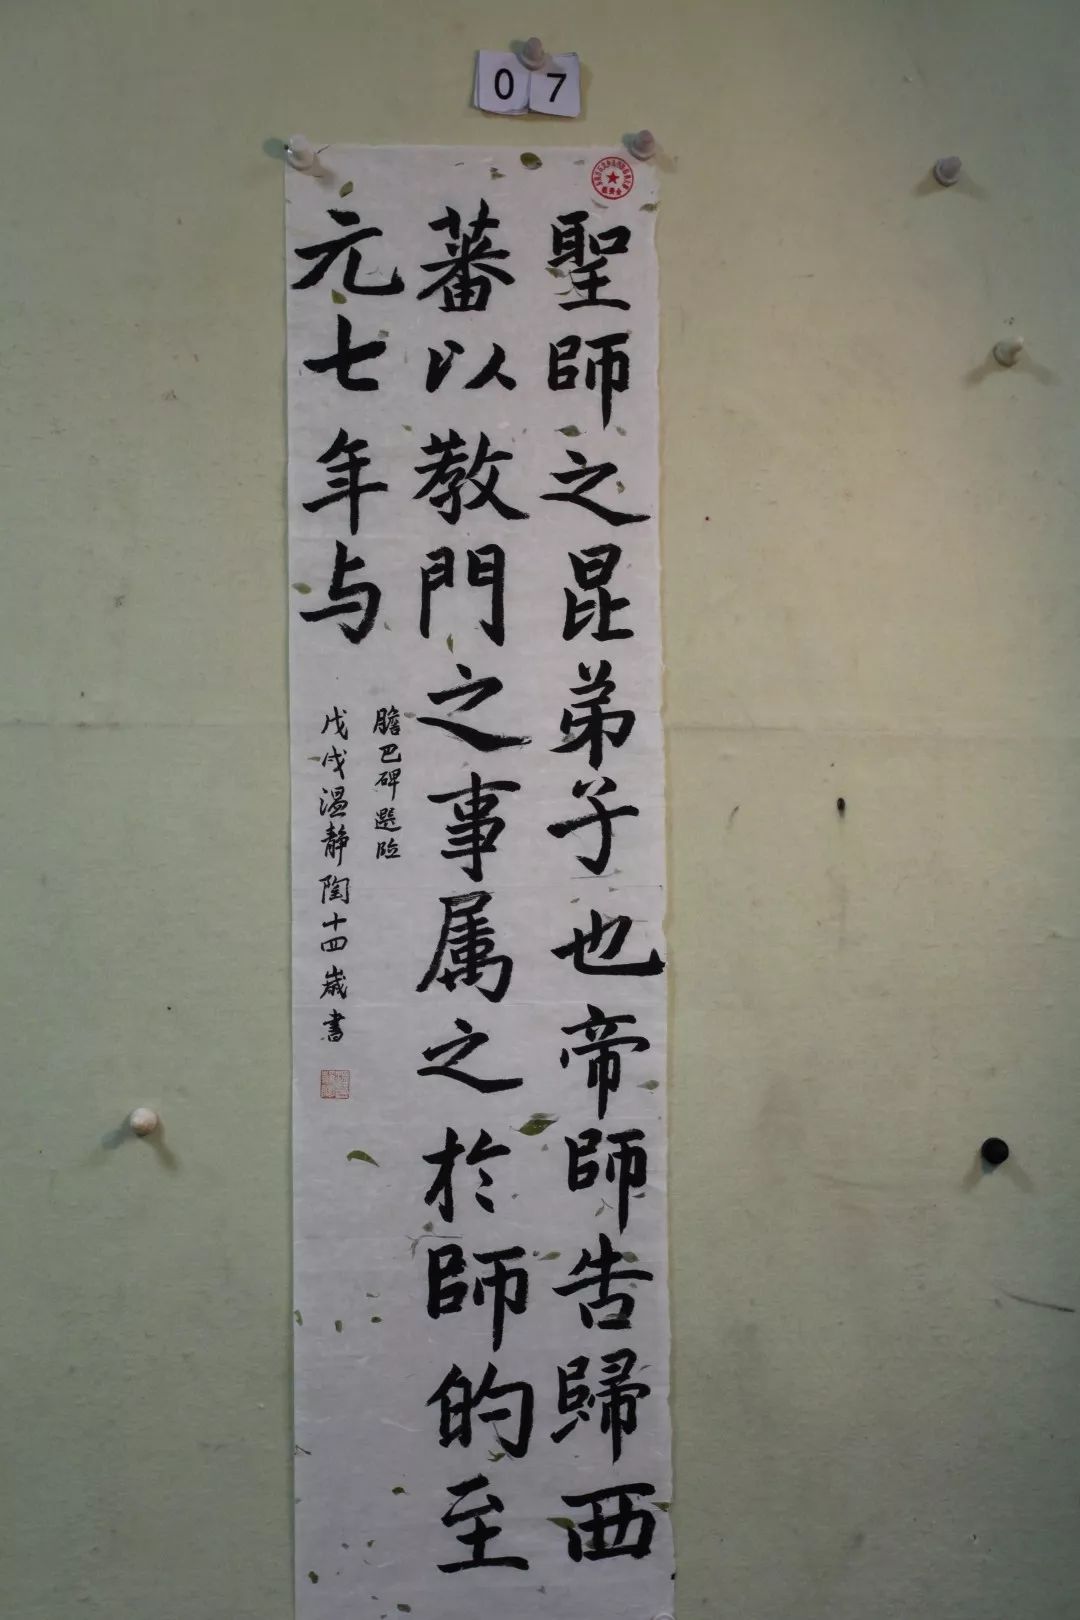 07
聖師之昆弟子也帝師告歸西
蕃以教門之事属之於師的至
元七年与
膽巴碑選臨
戊戌温静陶十四歲書